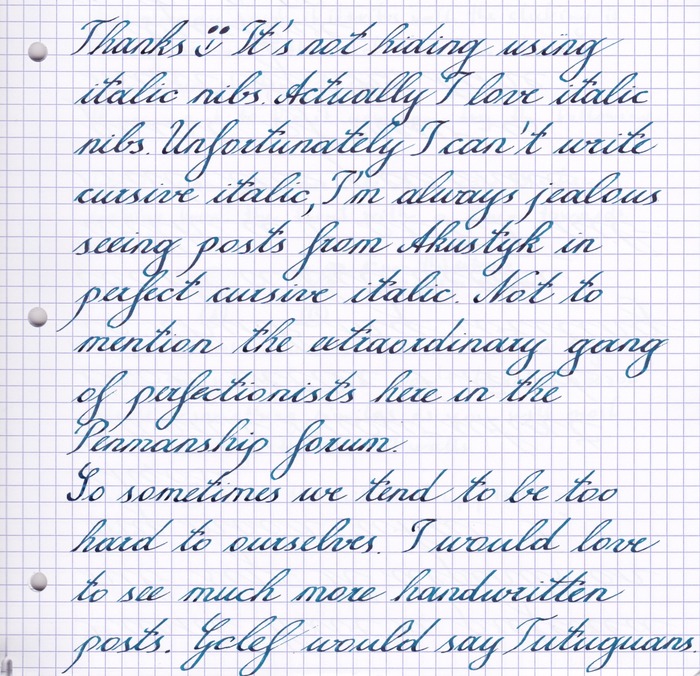 Thanks :) It's not hiding using
italic nibs. Actually I love italic
nibs. Unfortunately I can't write
cursive italic, I'm always jealous
seeing posts from Akustyk in
perfect cursive italic. Not to
mention the extraordinary gang
of perfectionists here in the
Penmanship forum.
So sometimes we tend to be too
hard to ourselves. I would love
to see much more handwritten
posts. Gclef would say Tutuguans.